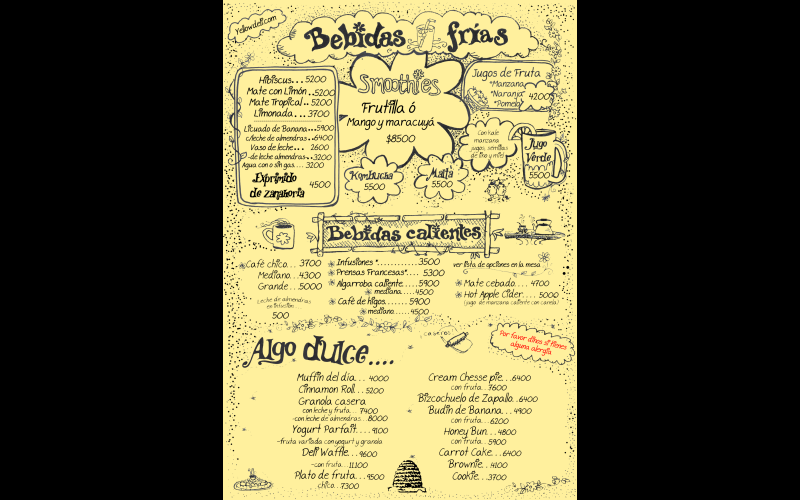 Yellowdeli.com
Bebidas frías
Hibiscus... 5200
Mate con Limón.. 5200
Mate Tropical.. 5200
Limonada... 3700
Licuado de Banana... 5900
c/leche de almendras.. 6400
Vaso de leche... 2600
-de leche almendras.. 3200
Agua con o sin gas.... 3200
Exprimido
de zanahoria
4500
Smoothies
Frutilla ó
Mango y maracuyá
$8500
Kombucha
5500
Malta
5500
Jugos de Fruta
*Manzana
*Naranja
*Pomelo
4200
Con kale
manzana
jugos, semillas
de lino y miel
Jugo
Verde
5500
Bebidas calientes
Café chico... 3700
Mediano... 4300
Grande... 5000
Leche de almendras
en infusion
500
Infusiones *............3500
Prensas Francesas*.... 5300
Algarroba caliente.....5900
mediana.....4500
Café de higos....... 5900
mediana.....4500
ver lista de opciones en la mesa
Mate cebado.... 4700
Hot Apple Cider.... 5000
(jugo de manzana caliente con canela)
Algo dulce....
casero!
Por favor dinos si tienes
alguna alergia
Muffin del dia... 4000
Cinnamon Roll... 5200
Granola casera
con leche y fruta.... 7400
-con leche de almendras.. 8000
Yogurt Parfait.... 9100
-fruta variada con yogurt y granola
Deli Waffle... 9600
-con fruta....11100
Plato de fruta...9500
chico...7300
Cream Chesse pie...6400
con fruta...7600
Bizcochuelo de Zapallo..6400
Budin de Banana... 4900
con fruta...6200
Honey Bun... 4800
con fruta...5900
Carrot Cake...6400
Brownie...4100
Cookie...3700